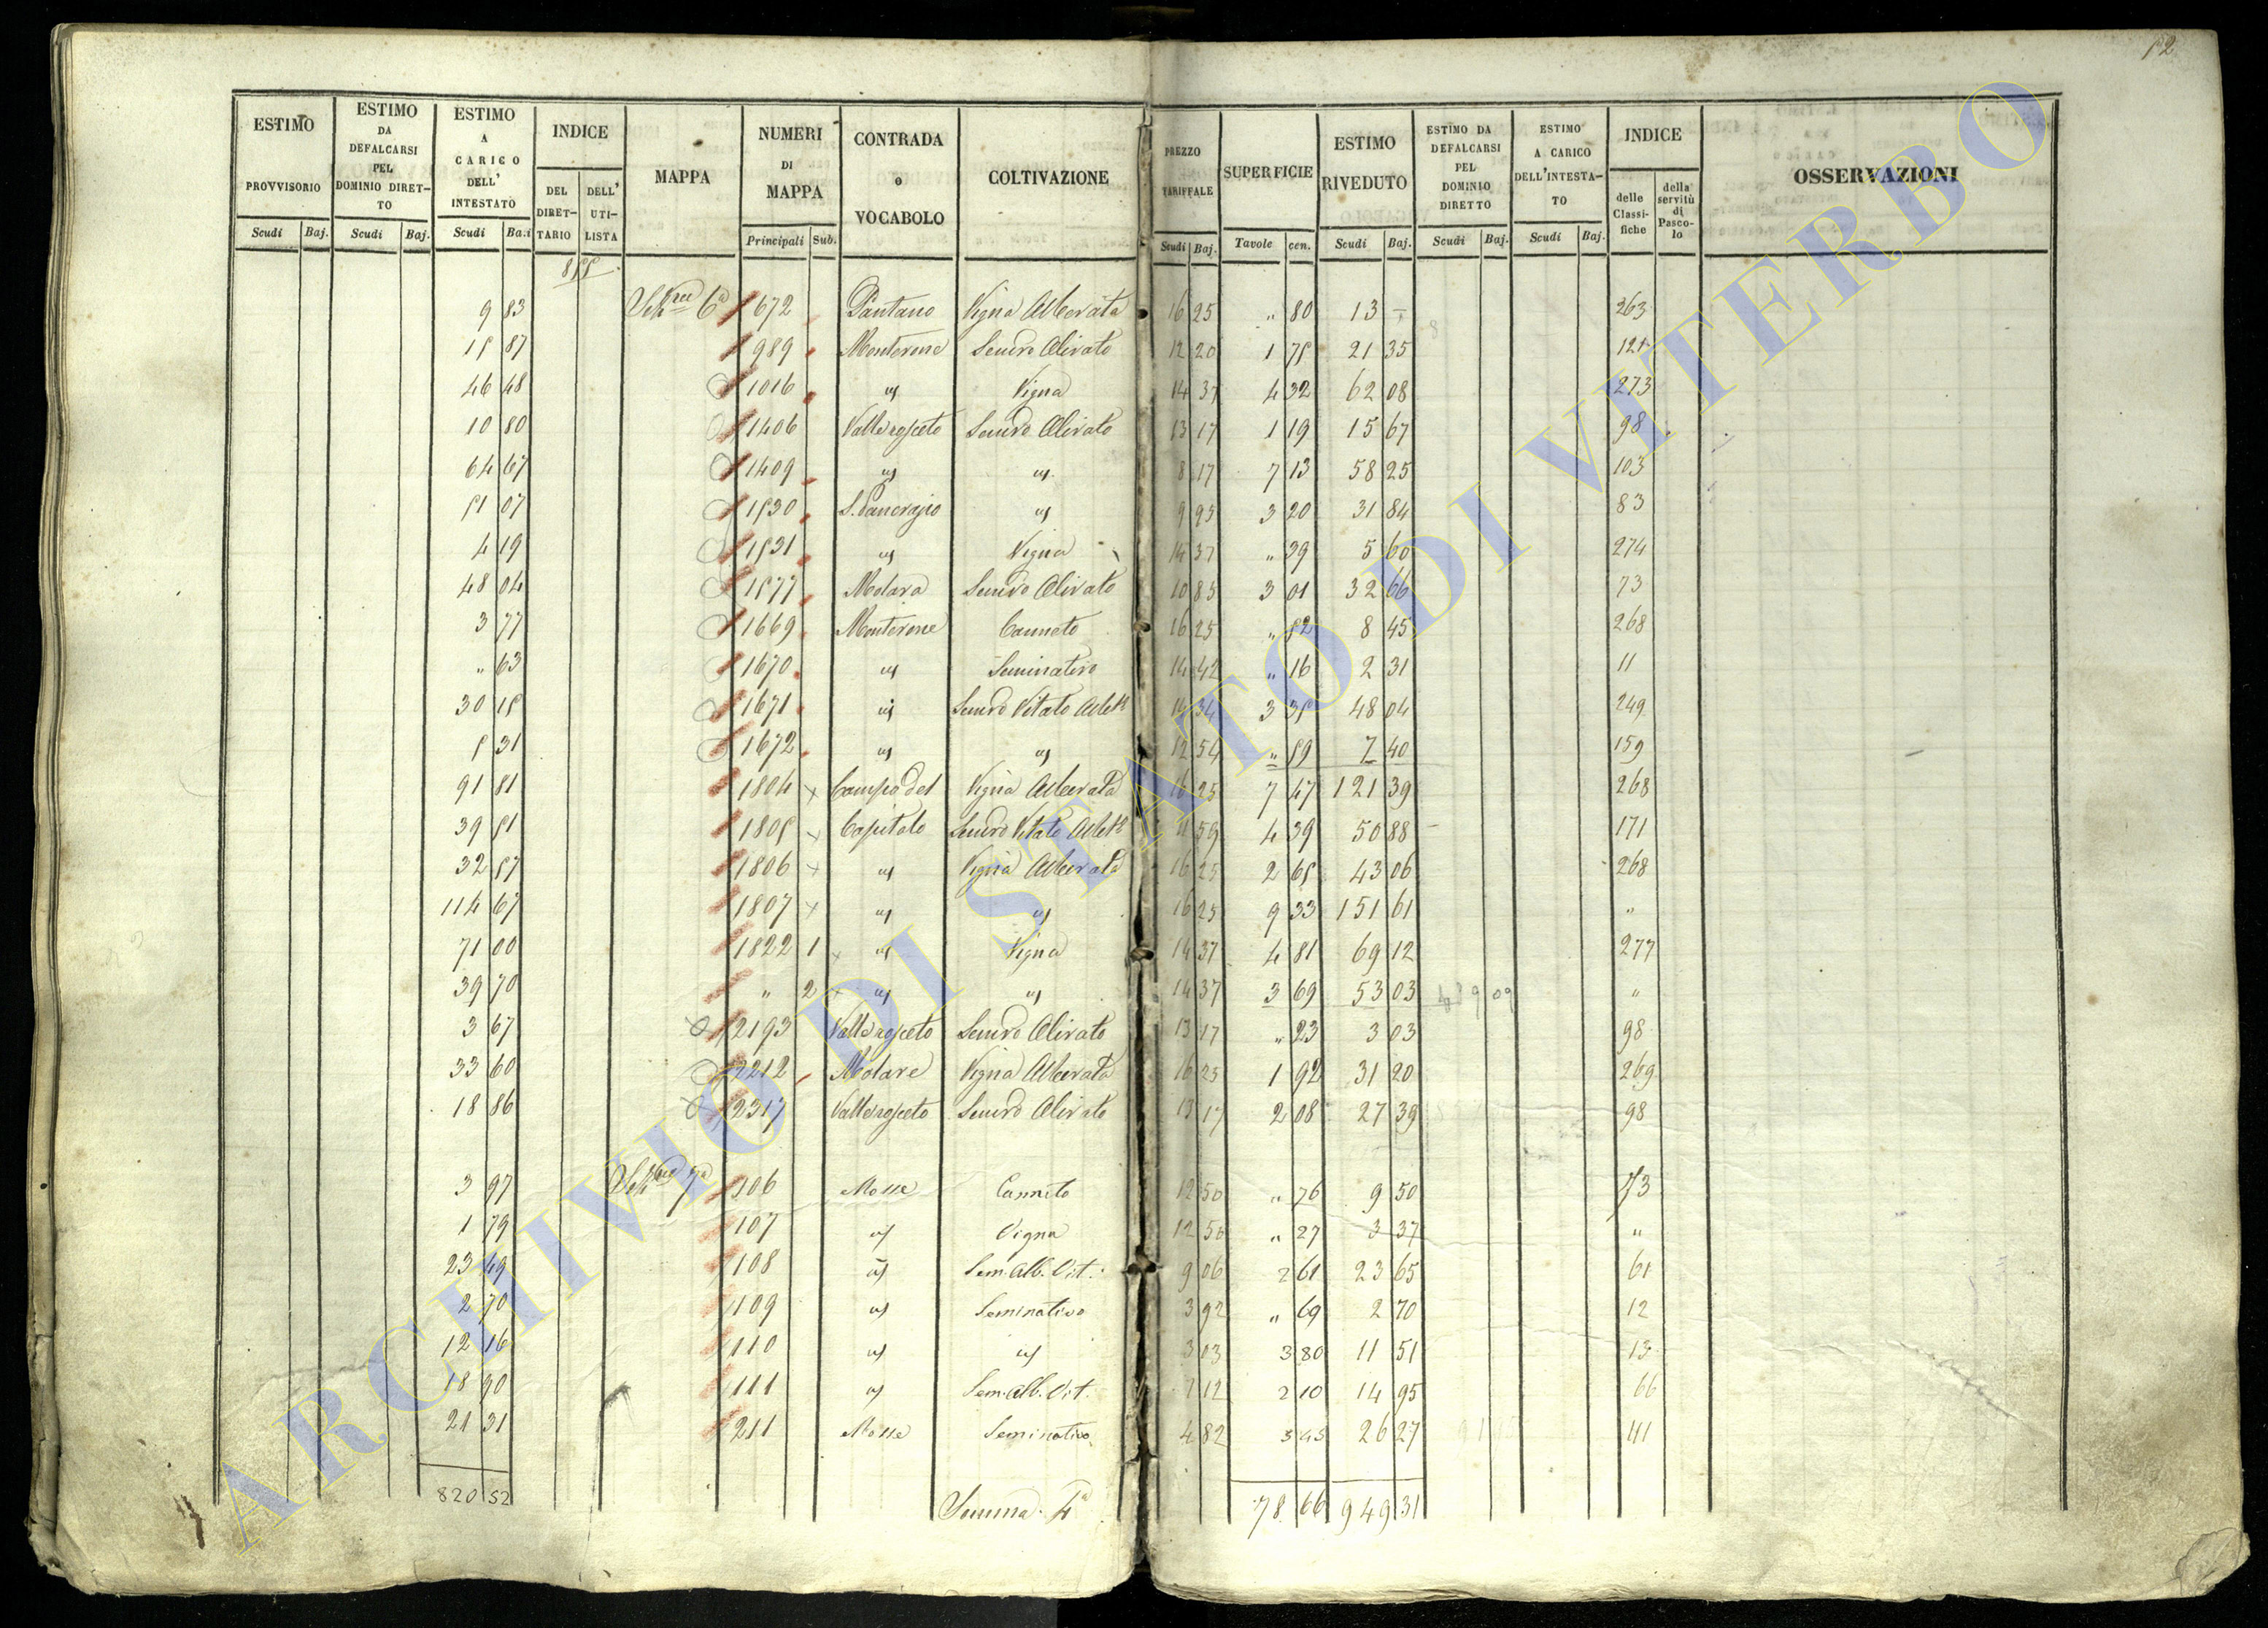 52
ESTIMO PROVVISORIO Scudi Baj.
ESTIMO DA DEFALCARSI PEL DOMINIO DIRETTO Scudi Baj.
ESTIMO A CARICO DELL' INTESTATO Scudi Baj.
INDICE DEL DIRETTARIO DELL' UTILISTA
MAPPA
NUMERI DI MAPPA Principali Sub.
CONTRADA o VOCABOLO
COLTIVAZIONE
PREZZO TARIFFALE Scudi Baj.
SUPERFICIE Tavole cen.
ESTIMO RIVEDUTO Scudi Baj.
ESTIMO DA DEFALCARSI PEL DOMINIO DIRETTO Scudi Baj.
ESTIMO A CARICO DELL'INTESTATO Scudi Baj.
INDICE delle Classifiche della servitù di Pascolo
OSSERVAZIONI
855
9 83 Sett.ne 6ª 672 Pantano Vigna Alberata 16 25 " 80 13 - 263
15 87 989 Monterone Semvo Olivato 12 20 1 75 21 35 121
46 48 1016 " Vigna 14 37 4 32 62 08 273
10 80 1406 Vallerosceto Semvo Olivato 13 17 1 19 15 67 98
64 67 1409 " " 8 17 7 13 58 25 103
51 07 1530 S. Pancrazio " 9 95 3 20 31 84 83
4 19 1531 " Vigna 14 37 " 39 5 60 274
48 04 1577 Molara Semvo Olivato 10 85 3 01 32 66 73
3 77 1669 Monterone Canneto 16 25 " 52 8 45 268
" 63 1670 " Seminativo 14 42 " 16 2 31 11
30 15 1671 " Semvo Vitato Albto 14 34 3 35 48 04 249
5 31 1672 " " 12 54 " 59 7 40 159
91 81 1804 Campo del Vigna Alberata 16 25 7 47 121 39 268
39 51 1805 Capitolo Semvo Vitato Albto 11 59 4 39 50 88 171
32 57 1806 " Vigna Alberata 16 25 2 65 43 06 268
114 67 1807 " " 16 25 9 33 151 61 "
71 00 1822 1 " Vigna 14 37 4 81 69 12 277
39 70 " 2 " " 14 37 3 69 53 03 "
3 67 2193 Vallerosceto Semvo Olivato 13 17 " 23 3 03 98
33 60 2212 Molare Vigna Alberata 16 25 1 92 31 20 269
18 86 2317 Vallerosceto Semvo Olivato 13 17 2 08 27 39 98
3 97 Sett.ne 7ª 106 Mosse Canneto 12 50 " 76 9 50 73
1 79 107 " Vigna 12 50 " 27 3 37 "
23 49 108 " Sem. Alb. Vit. 9 06 2 61 23 65 61
2 70 109 " Seminativo 3 92 " 69 2 70 12
12 16 110 " " 3 03 3 80 11 51 13
18 90 111 " Sem. Alb. Vit. 7 12 2 10 14 95 66
21 31 211 Mosse Seminativo 4 82 5 45 26 27 111
820 52 Somma 4ª 78 66 949 31
ARCHIVIO DI STATO DI VITERBO